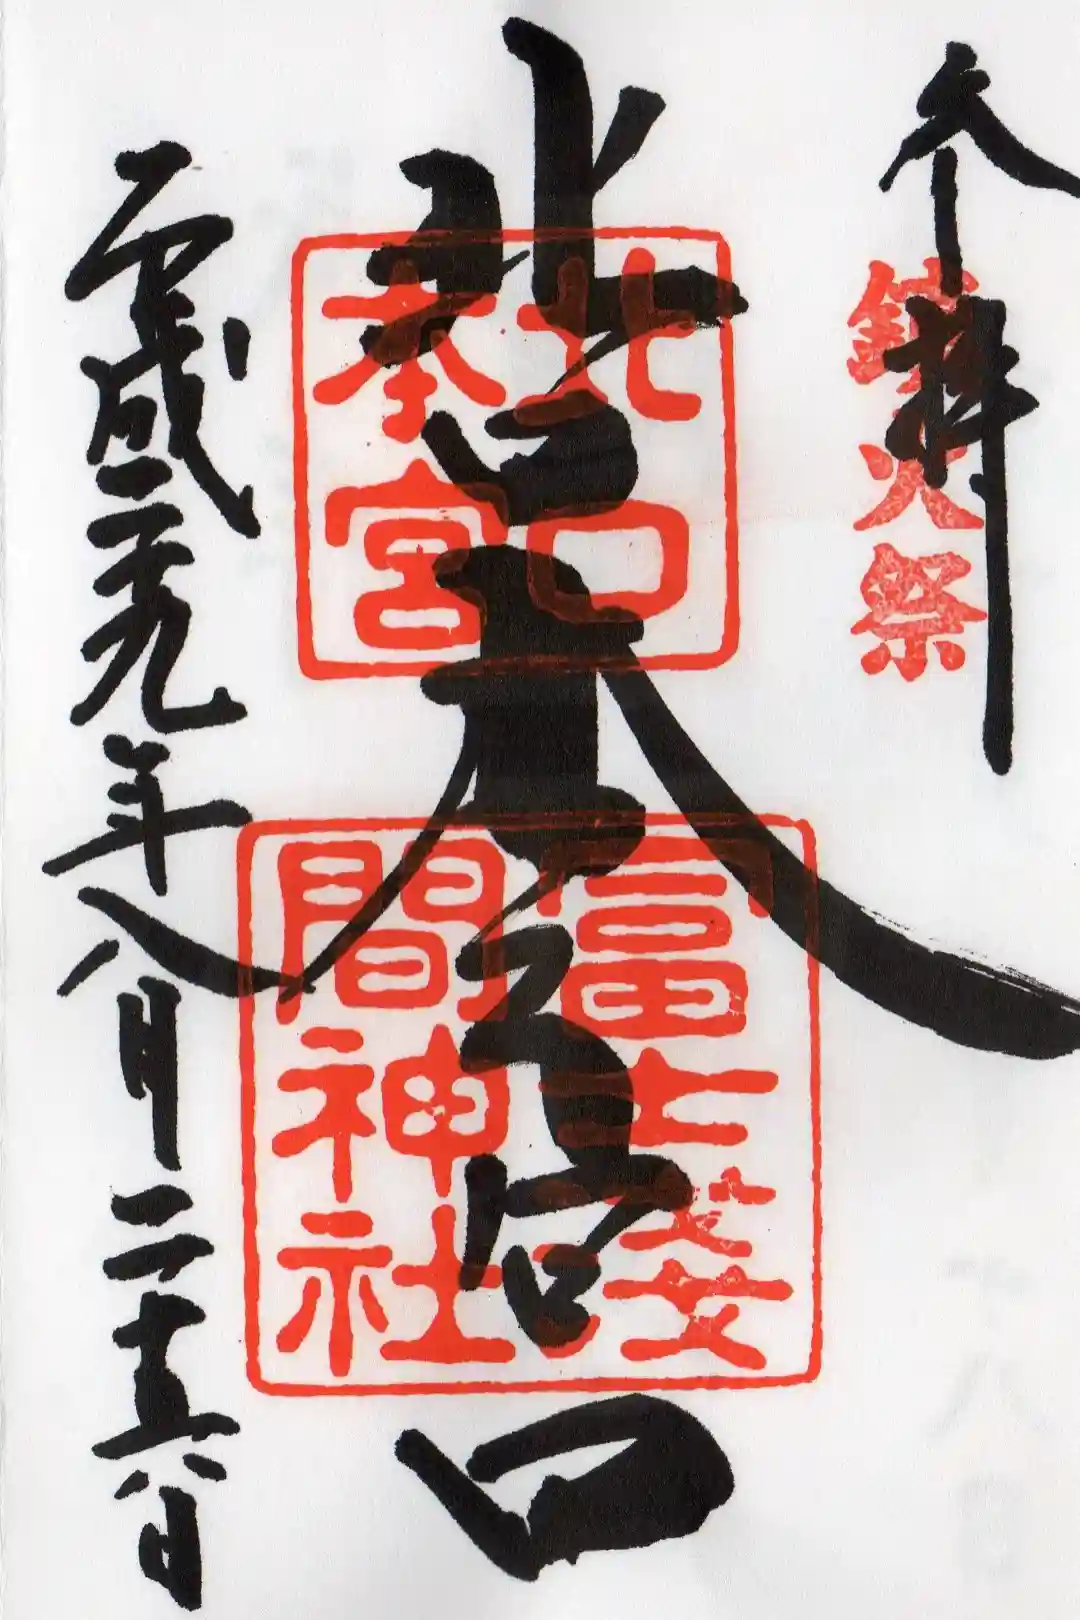 参拝
鎮火祭
北口本宮
北口
本宮
冨士淺
間神社
平成二十九年八月二十六日